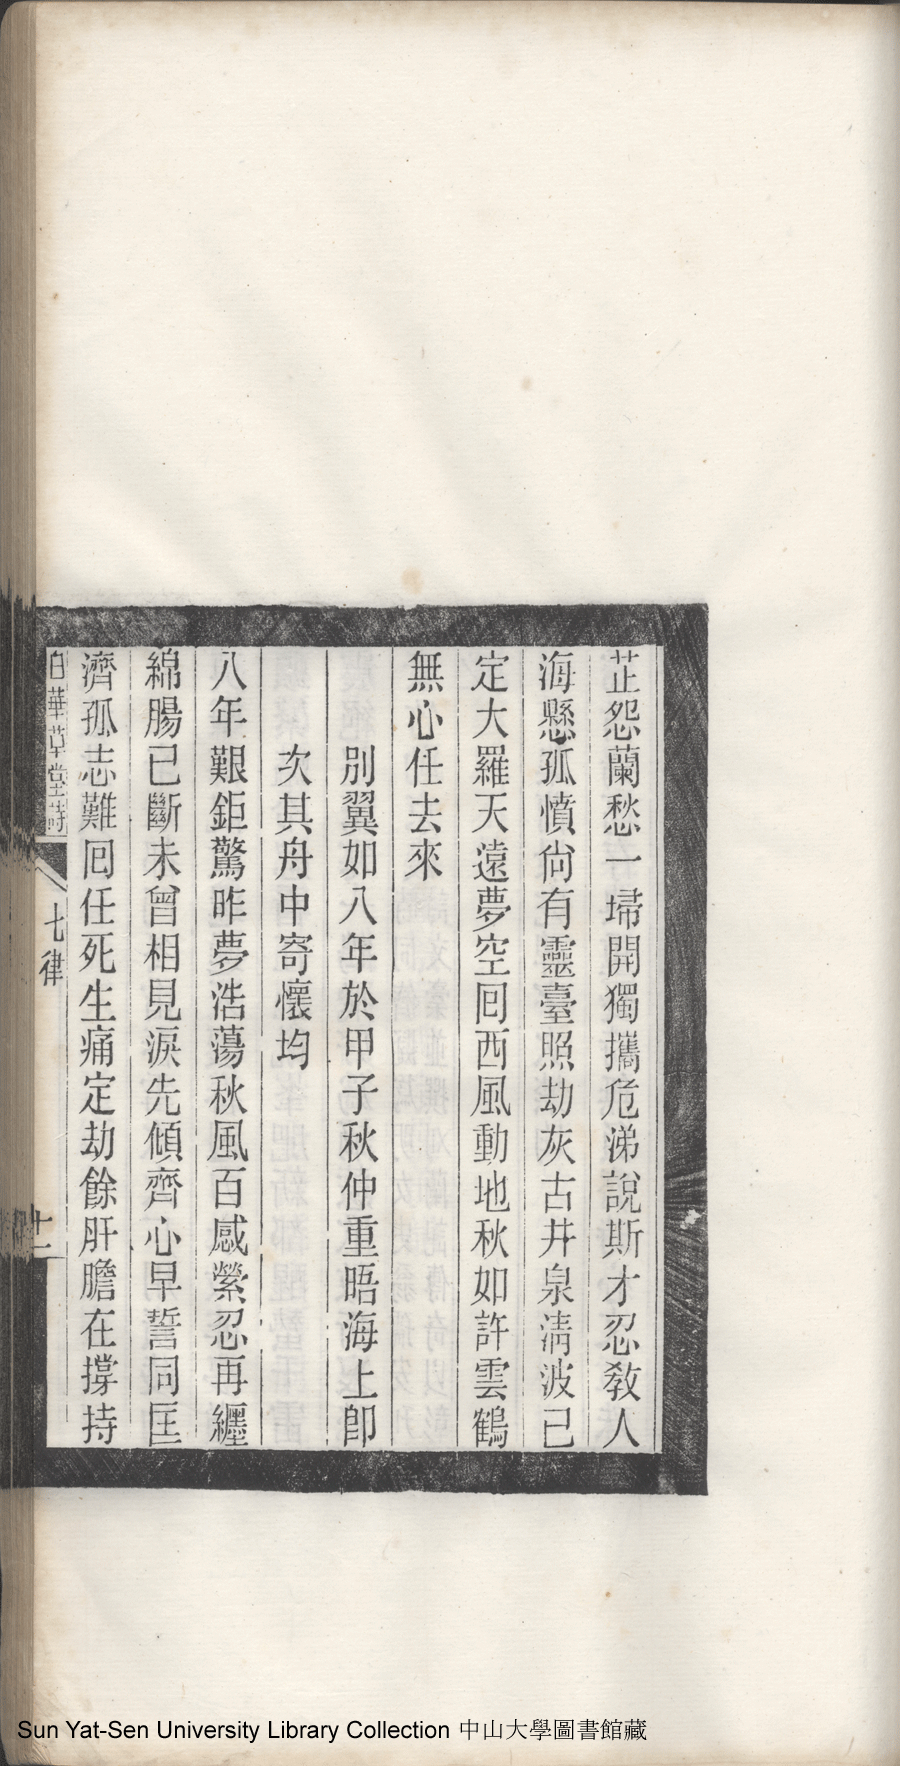 芷怨蘭愁一埽開獨攜危涕說斯才忍教人
海懸孤憤尙有靈臺照劫灰古井泉淸波已
定大羅天遠夢空囘西風動地秋如許雲鶴
無心任去來
別翼如八年於甲子秋仲重晤海上卽
次其舟中寄懷均
八年艱鉅驚昨夢浩蕩秋風百感縈忍再纏
綿腸已斷未曾相見淚先傾齊心早誓同匡
濟孤志難囘任死生痛定劫餘肝膽在撐持
白華草堂詩
七律
十一
Sun Yat-Sen University Library Collection 中山大學圖書館藏